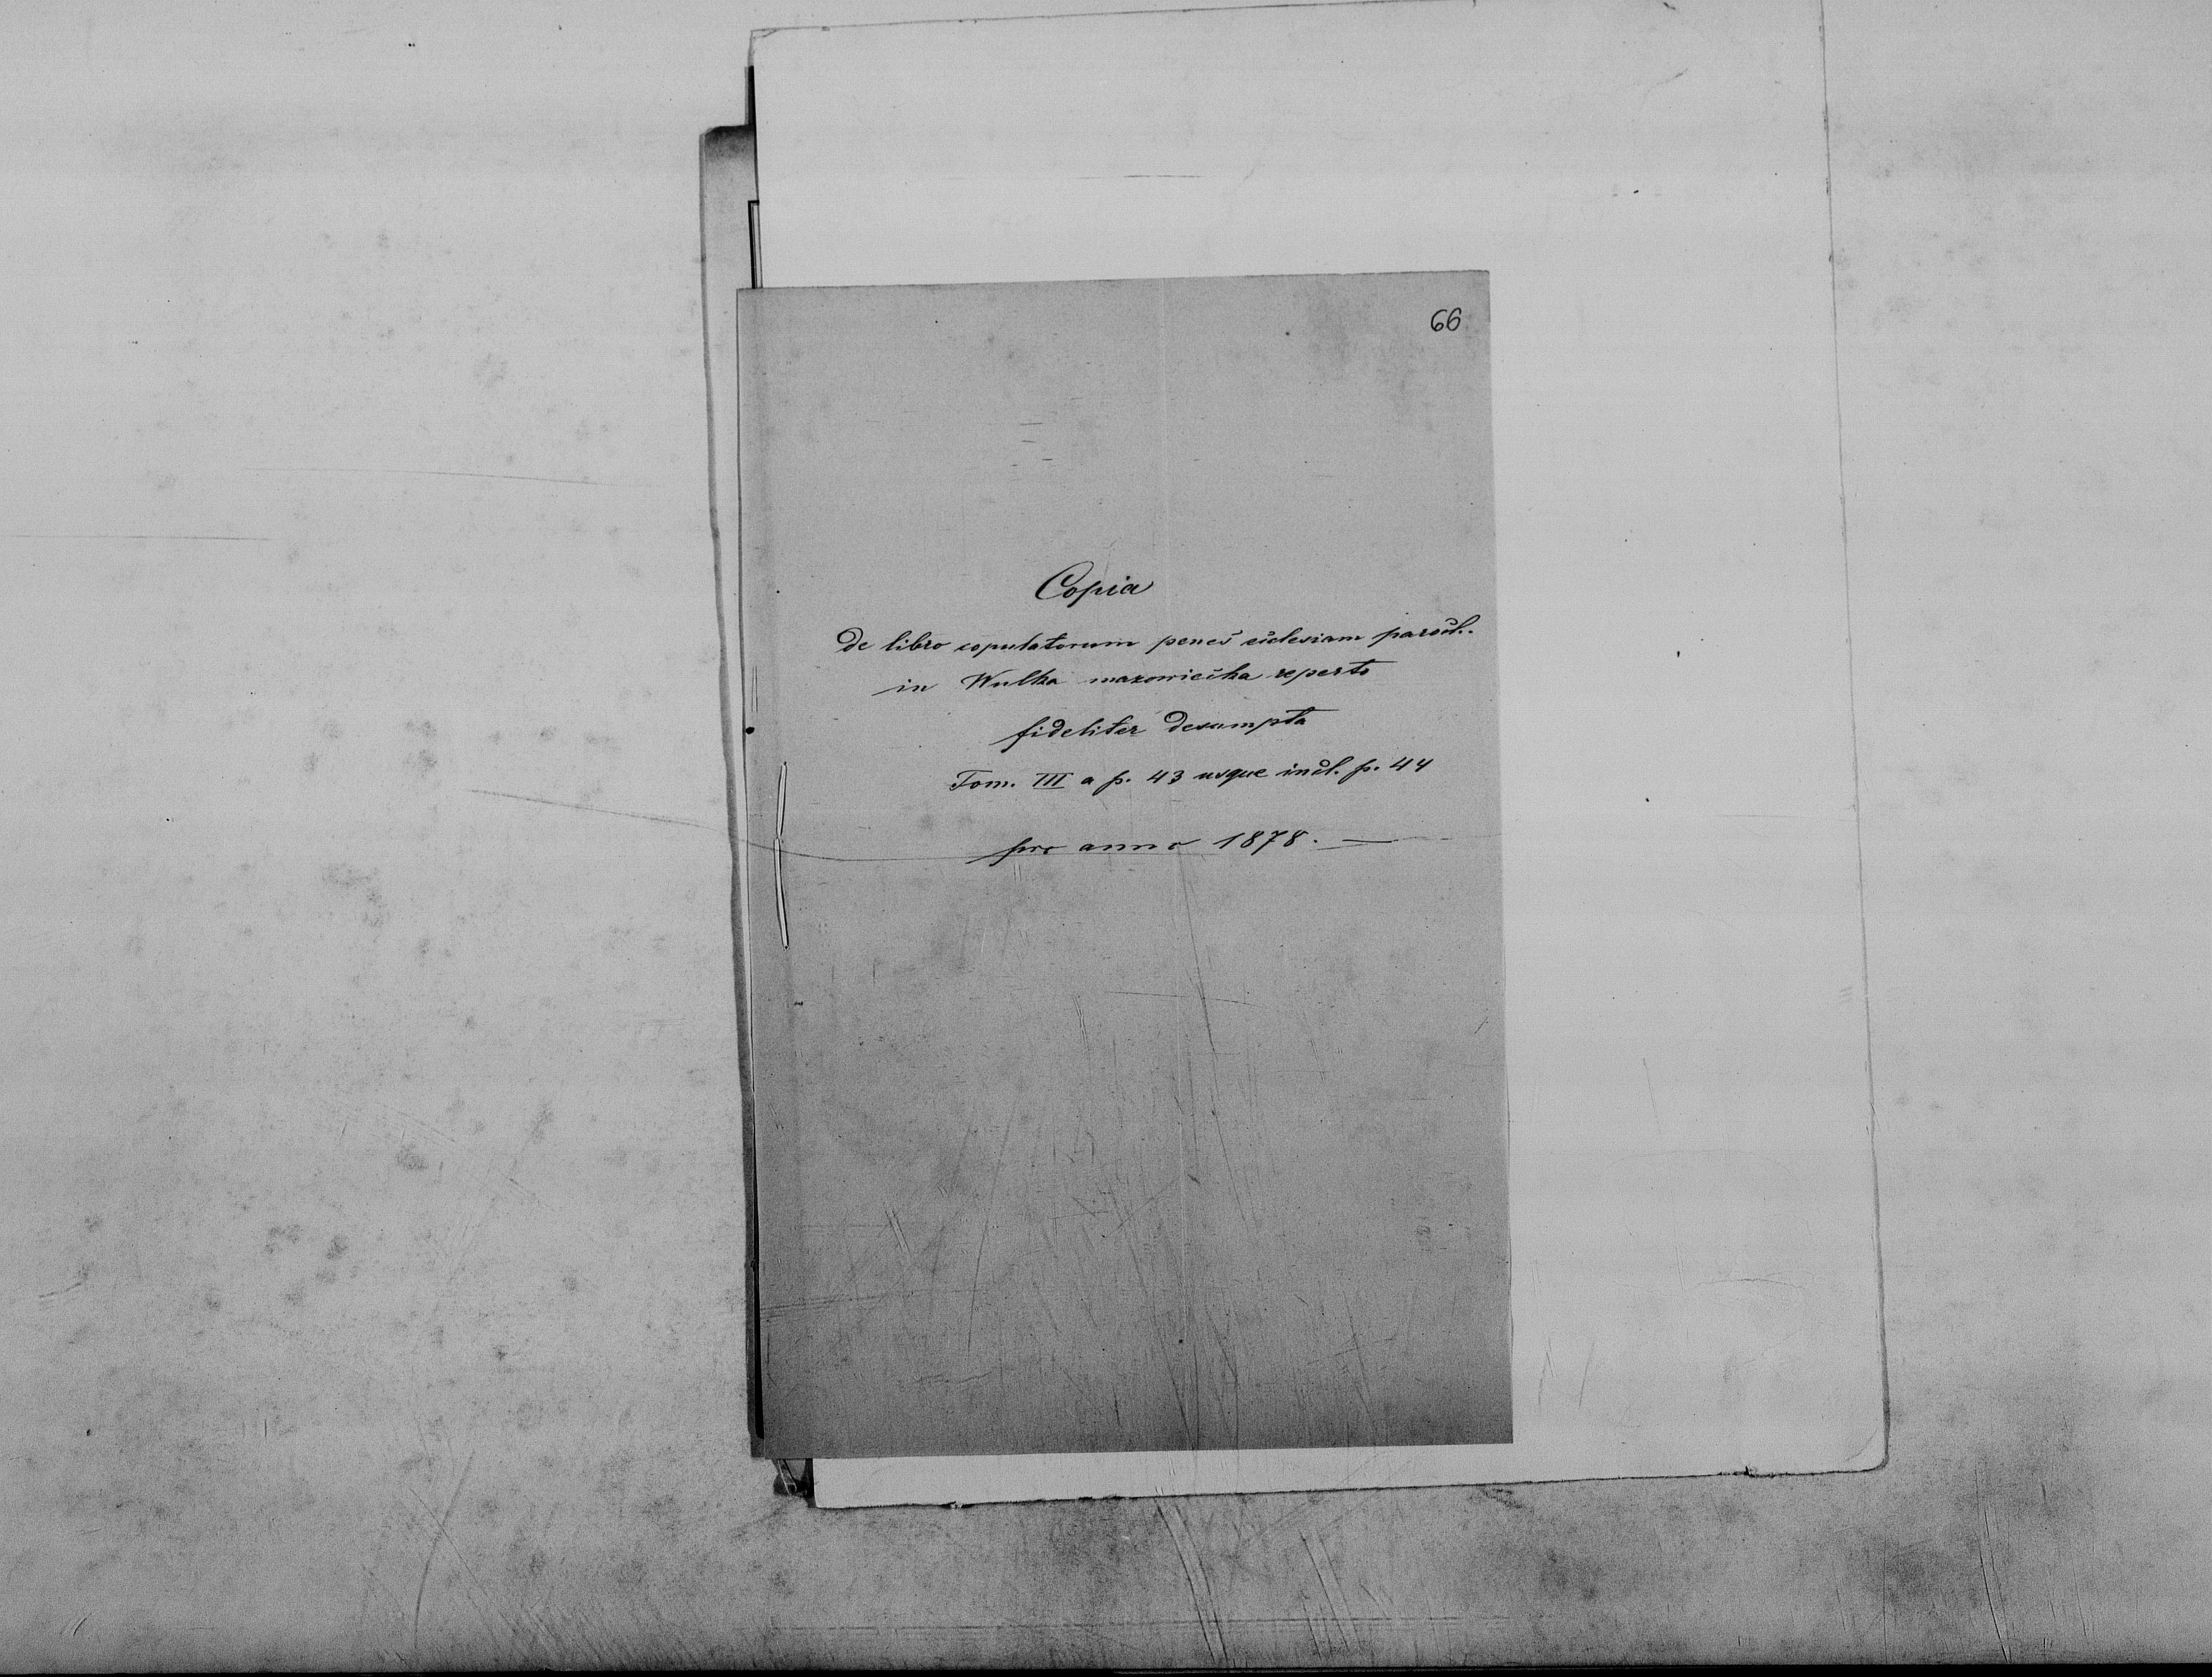 66
Copia
De libro copulatorum penes ecclesiam paroch.
in Wulka mazowiecka reperto
fideliter desumpta
Tom. III a p. 43 usque incl. p. 44
pro anno 1878. —